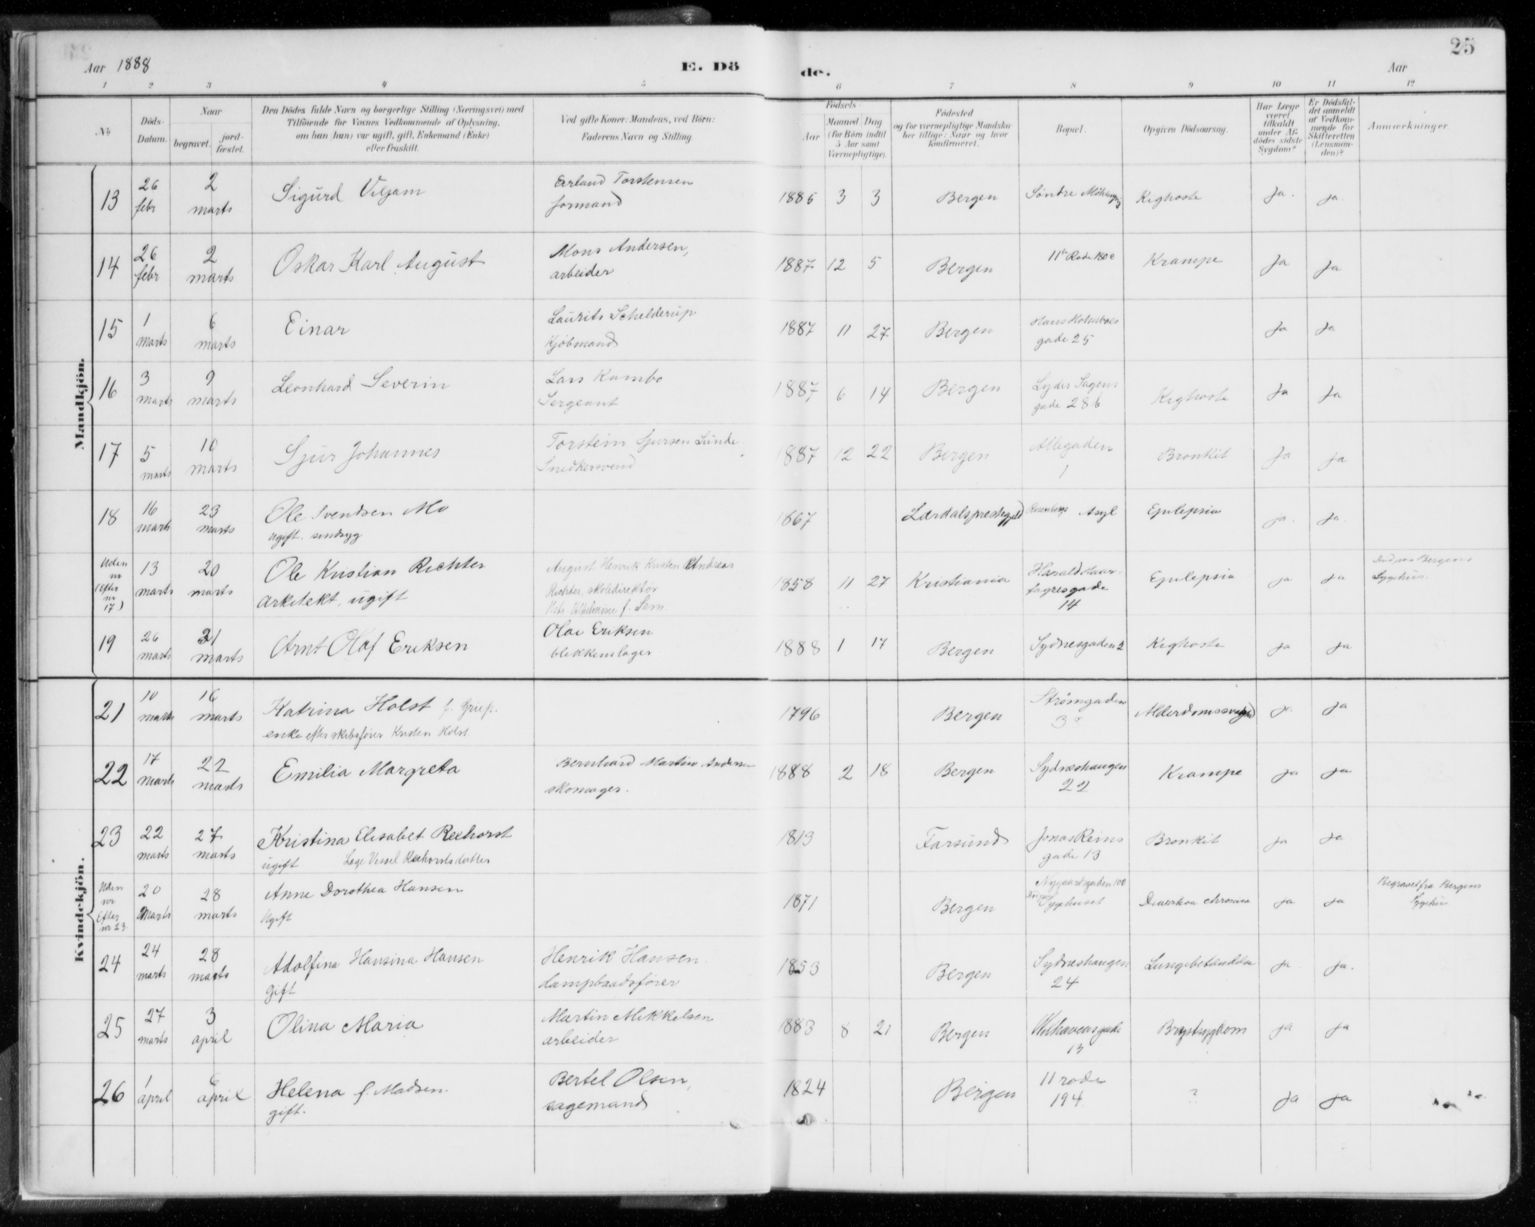 25
Aar 1888
E. Döde.
Aar
1 2 3 4 5 6 7 8 9 10 11 12
No
Döds-Datum.
Naar
begravet.
jord-fæstet.
Den Dödes fulde Navn og borgerlige Stilling (Næringsvei) med
Tilföiende for Voxnes Vedkommende af Oplysning,
om han (hun) var ugift, gift, Enkemand (Enke)
eller fraskilt.
Ved gifte Koner: Mandens, ved Börn:
Faderens Navn og Stilling.
Födsels-
Aar
Maaned Dag
(for Börn indtil
5 Aar samt
Værnepligtige).
Födested
og for værnepligtige Mandskaber tillige: Naar og hvor
konfirmeret.
Bopæl.
Opgiven Dödsaarsag.
Har Læge
været
tilkaldt
under Afdödes sidste
Sygdom?
Er Dödsfaldet anmeldt
af Vedkommende for
Skifteretten
(Lensmanden)?
Anmærkninger.
Mandkjön.
13 26 febr 2 marts Sigurd Viljam Erland Torstensen formand 1886 3 3 Bergen Söndre Kighoste Ja. Ja.
14 26 febr 2 marts Oskar Karl August Mons Andersen, arbeider 1887 12 5 Bergen 11te Rode Krampe Ja Ja
15 1 marts 6 marts Einar Laurits Schelderup Kjöbmand 1887 11 27 Bergen Hans Holmboes gade 25 Ja Ja
16 3 marts 9 marts Leonhard Severin Lars Kambo Sergeant 1887 6 14 Bergen Lyder Sagens gade 28 b Kighoste Ja Ja
17 5 marts 10 marts Sjur Johannes Torstein Sjursen Lunde Snedkersvend 1887 12 22 Bergen Allegaden 1 Bronkit Ja Ja
18 16 marts 23 marts Ole Svendsen Mo ugift. sindsyg 1867 Lærdalsprestegjeld Rosenbergs Asyl Epilepsia ja. Ja.
Uden nr (Efter nr 17) 13 marts 20 marts Ole Kristian Richter arkitekt, ugift August Henrik Kirsten Andreas Richter, skoledirektör f. Sem 1858 11 27 Kristiania Harald Haarfagresgade 14 Epilepsia ja Ja Bergens Sygehus
19 26 marts 31 marts Arnt Olaf Eriksen Olai Eriksen blikkenslager 1888 1 17 Bergen Sydnesgaden 2 Kighoste ja Ja
Kvindekjön.
21 10 marts 16 marts Katrina Holst f. Grip. enke efter skibsförer Kirsten Holst 1796 Bergen Strömgaden 3 Alderdomssvaghed ja Ja
22 17 marts 22 marts Emilia Margreta Bernhard Martin Andersen skomager. 1888 2 18 Bergen Sydneshaugen 22 Krampe ja Ja
23 22 marts 27 marts Kristina Elisabet Reehorst ugift Læge Vessel Reehorsts datter 1813 Farsund Jonas Reins gade 13 Bronkit ja Ja
Uden nr Efter nr 23 20 Marts 28 marts Anne Dorothea Hansen Ugift 1871 Bergen Nygaardsgaden 100 Sygehuset chronica ja Ja Begravet fra Bergens Sygehus
24 24 marts 28 marts Adolfina Hansina Hansen gift Henrik Hansen. dampbaadsförer 1853 Bergen Sydneshaugen 24 Lungebetændelse ja ja.
25 27 marts 3 april Olina Maria Martin Mikkelsen arbeider 1883 8 21 Bergen 13 Brystsygdom ja Ja
26 1 april 6 april Helena f. Madsen. gift. Bertel Olsen, sagemand 1824 Bergen 11 rode 194 ? Ja Ja